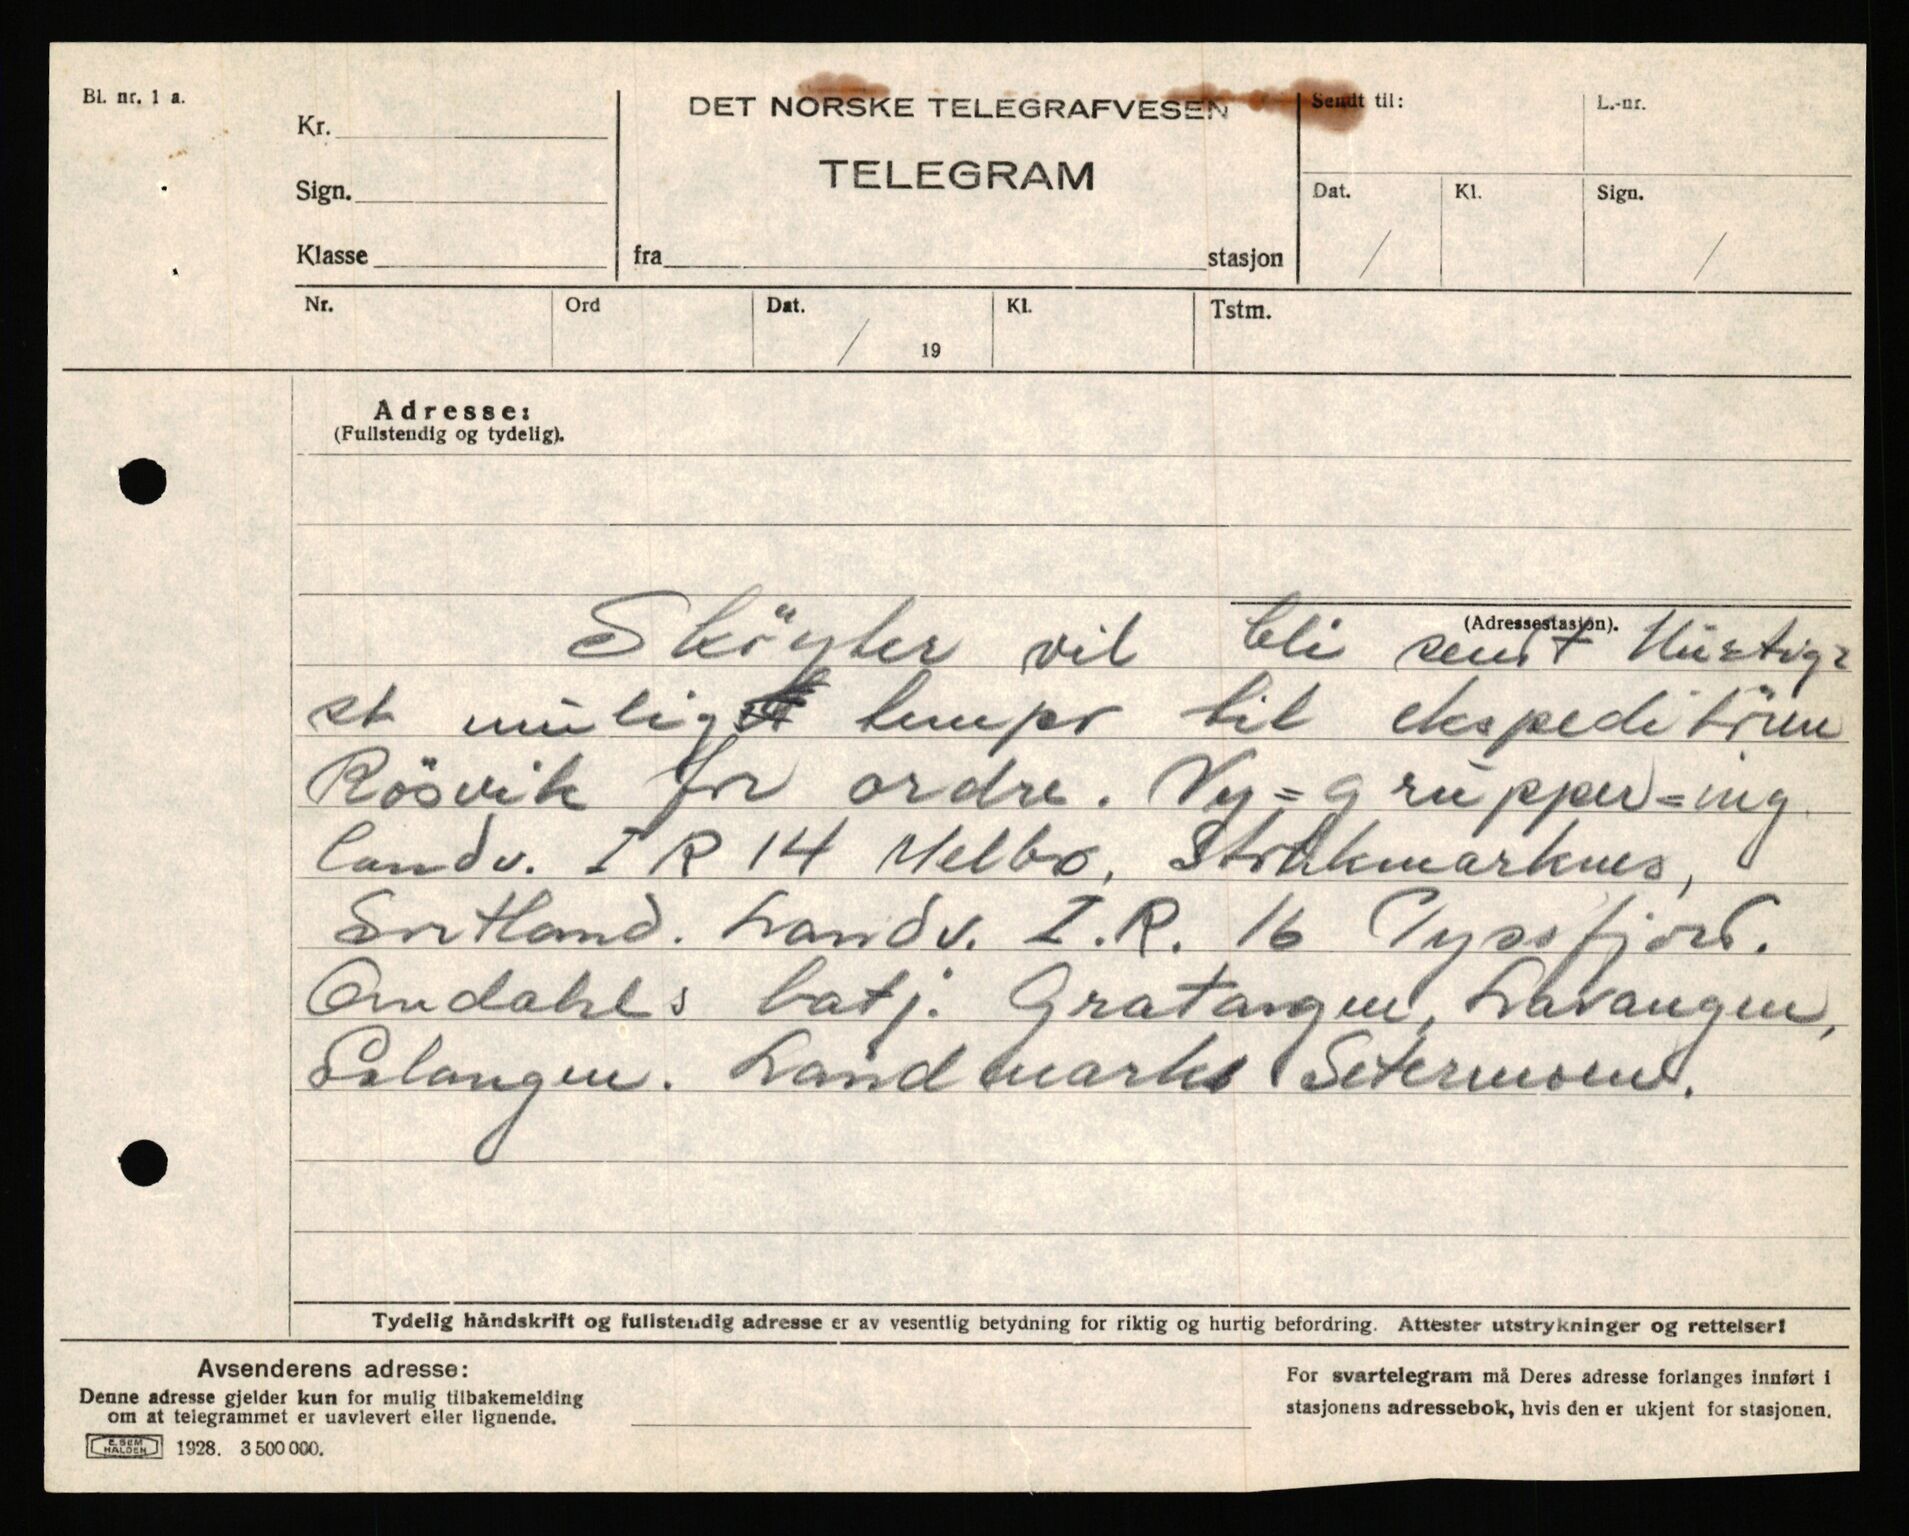 Bl. nr. 1 a.
Kr.
Sign.
Klasse
DET NORSKE TELEGRAFVESEN
TELEGRAM
fra stasjon
Sendt til:
L.-nr.
Dat. /
Kl.
Sign. /
Nr.
Ord
Dat. / 19
Kl.
Tstm.
Adresse:
(Fullstendig og tydelig).
(Adressestasjon).
Sköyter vil bli sendt Hurtig=
st mulig tempo til ekspeditören
Rösvik for ordre. Ny=grupper=ing
landv. I R 14 Melbo, Stokmarknes,
Sortland. Landv. I.R. 16 Tyssfjord.
Omdahls batj. Gratangen, Lavangen,
Salangen. Landmarks Setermoen.
Tydelig håndskrift og fullstendig adresse er av vesentlig betydning for riktig og hurtig befordring. Attester utstrykninger og rettelser!
Avsenderens adresse:
Denne adresse gjelder kun for mulig tilbakemelding
om at telegrammet er uavlevert eller lignende.
E. SEM
HALDEN
1928. 3 500 000.
For svartelegram må Deres adresse forlanges innført i
stasjonens adressebok, hvis den er ukjent for stasjonen.